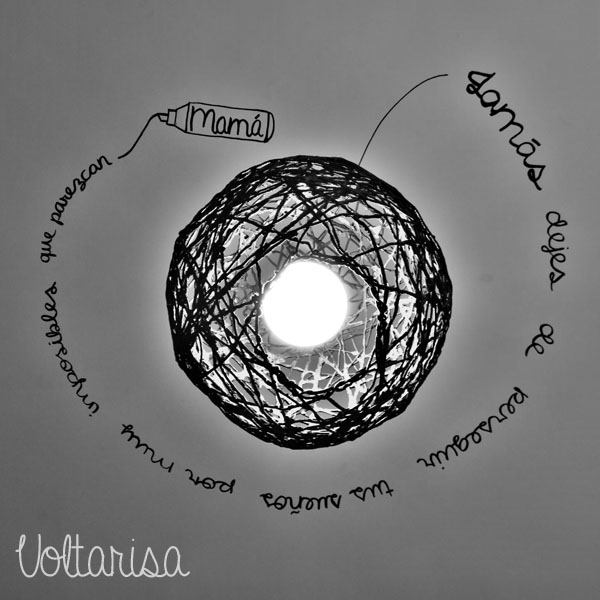 Jamás dejes de perseguir tus sueños por muy imposibles que parezcan
Mamá
Voltarisa